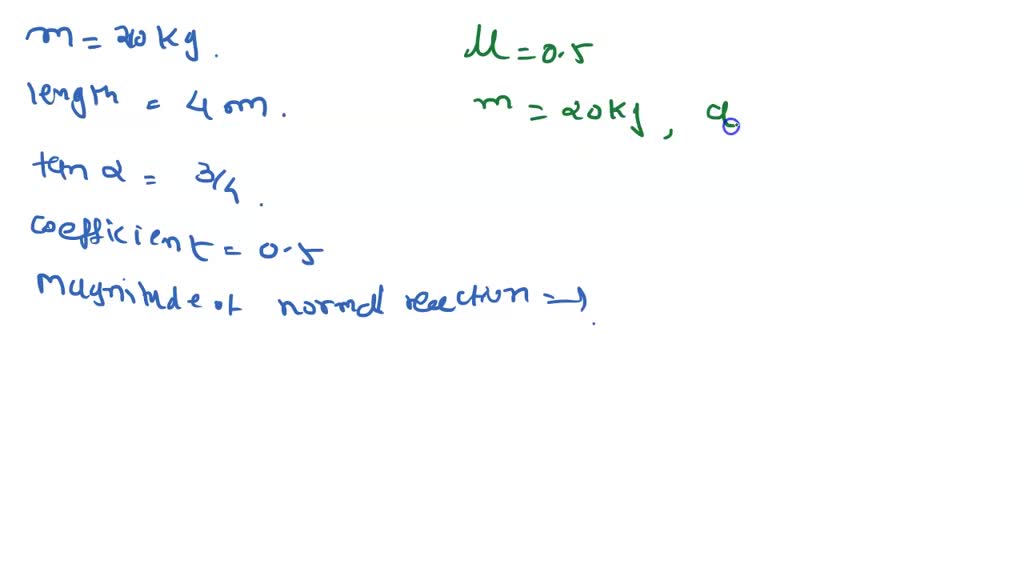 m = 20 kg.
length = 4 m.
tan α = 3/4.
coefficient = 0.5
Magnitude of normal reaction =→.
μ = 0.5
m = 20 kg, d